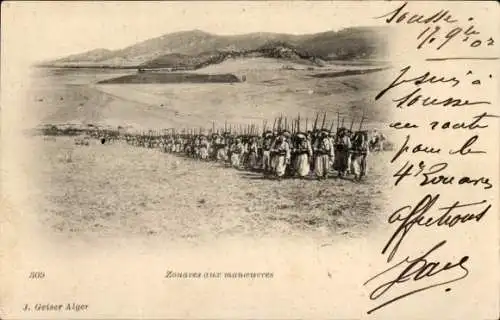 Sousse
17 9bre 02
Je suis à
Sousse
en route
pour le
4e Zouaves
affections
309
Zouaves aux manœuvres
J. Geiser Alger